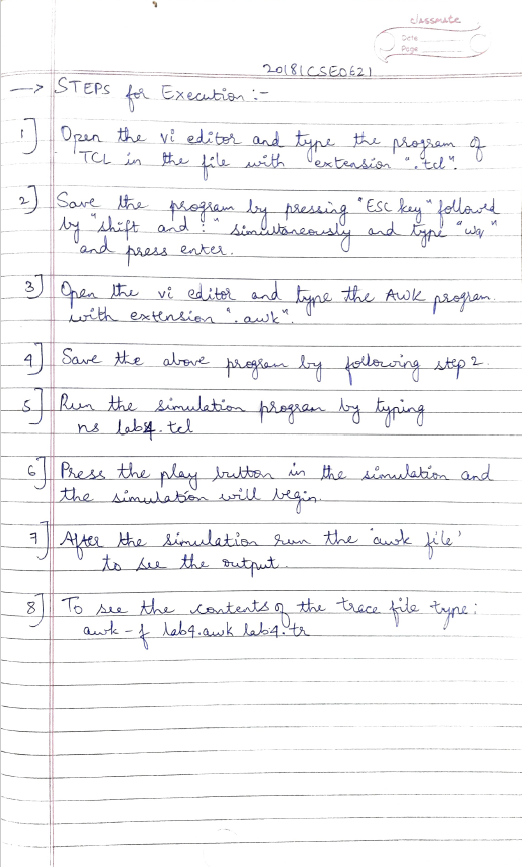 classmate
Date
Page
20181CSE0621
→ STEPS for Execution :-
1] Open the vi editor and type the program of
TCL in the file with "extension ".tcl".
2] Save the program by pressing "ESC key" followed
by "shift and :" simultaneously and type "wq"
and press enter.
3] Open the vi editor and type the AWK program.
with extension ".awk".
4] Save the above program by following step 2.
5] Run the simulation program by typing
ns lab4.tcl
6] Press the play button in the simulation and
the simulation will begin.
7] After the simulation run the 'awk file'
to see the output.
8] To see the contents of the trace file type:
awk -f lab4.awk lab4.tr